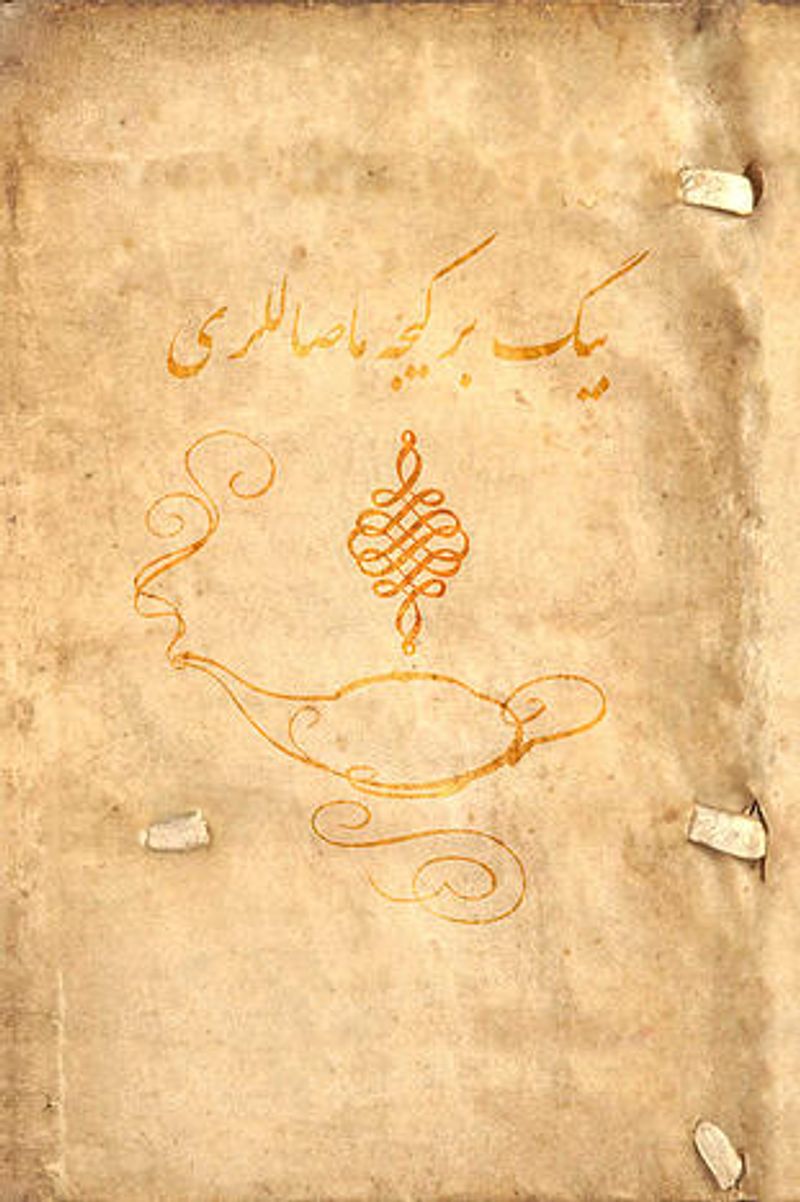 بیک بر کیجه ماصاللری